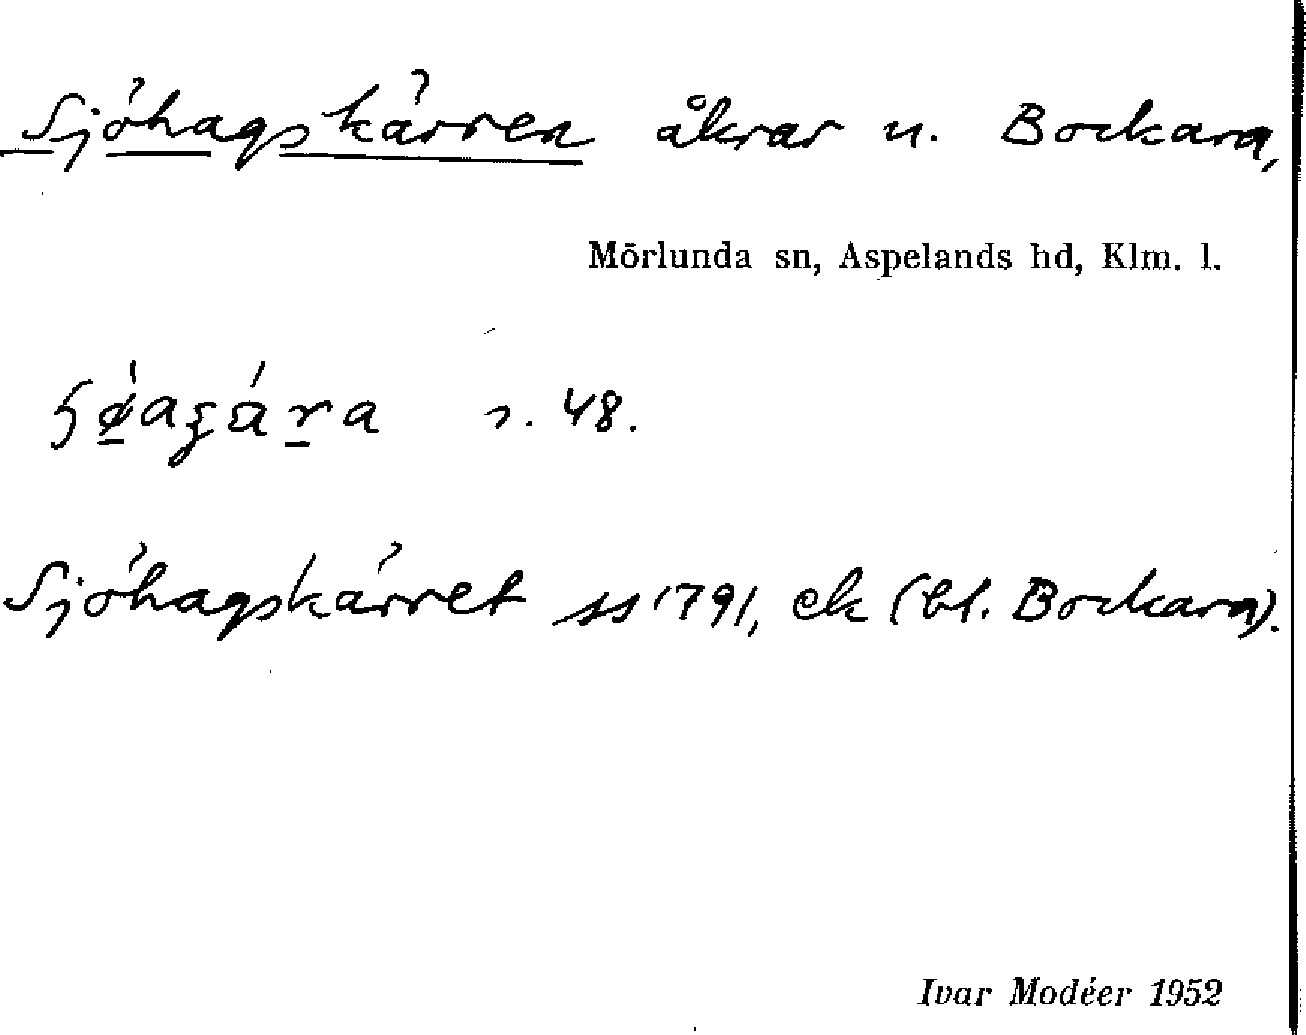 Sjöhagskärren åkrar u. Bockara,
Mörlunda sn, Aspelands hd, Klm. l.
s. 48.
Sjöhagskärret ss 1791, ek (bl. Bockara).
Ivar Modéer 1952